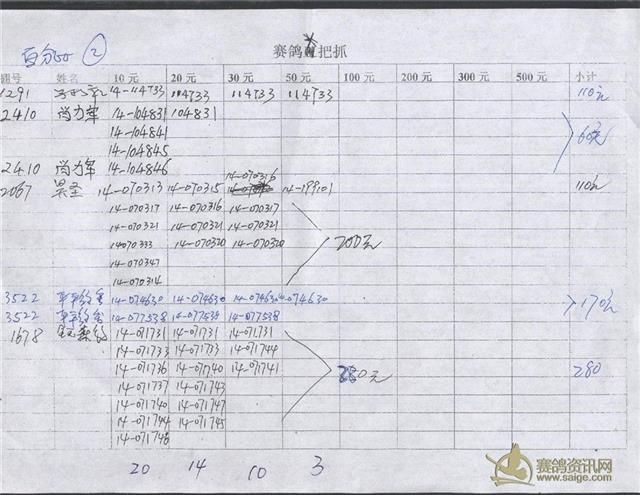 百分 ②
赛鸽 把抓
棚号 姓名 10元 20元 30元 50元 100元 200元 300元 500元 小计
1291 14-114733 114733 114733 114733 110元
2410 尚力军 14-104831 104831
14-104841 60元
14-104845
2410 尚力军 14-104846
14-070316
2067 吴圣 14-070313 14-070315 14-199101 110元
14-070317 14-070316 14-070317
14-070321 14-070321 14-070321
1470333 14-070320 14-070320 200元
14-070347
14-070314
3522 14-074630 14-074630 14-074630 074630 170元
3522 14-077538 14-077538 14-077538
1678 14-071731 14-071731 14-071731
14-071733 14-071733 14-071744
14-071736 14-071740 14-071741 280元 280
14-071737 14-071743
14-071740 14-071747
14-071744 14-071745
14-071746
20 14 10 3
赛鸽资讯网
www.saige.com